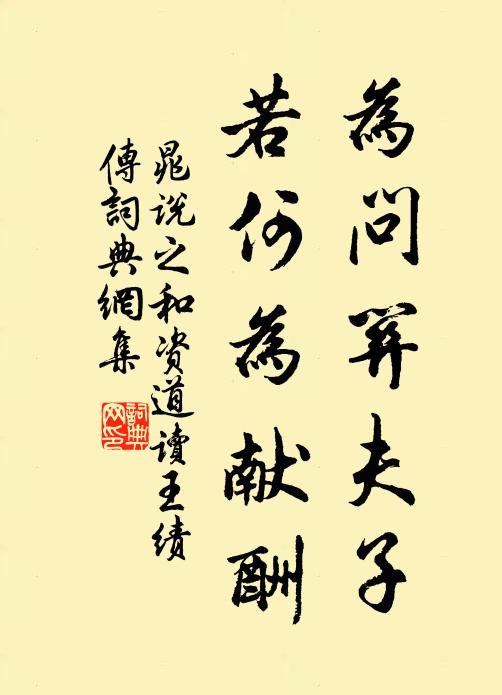 為問羿夫子
若何為献酬
晁説之和資道讀王績
傳詞典網集
詞典
网印